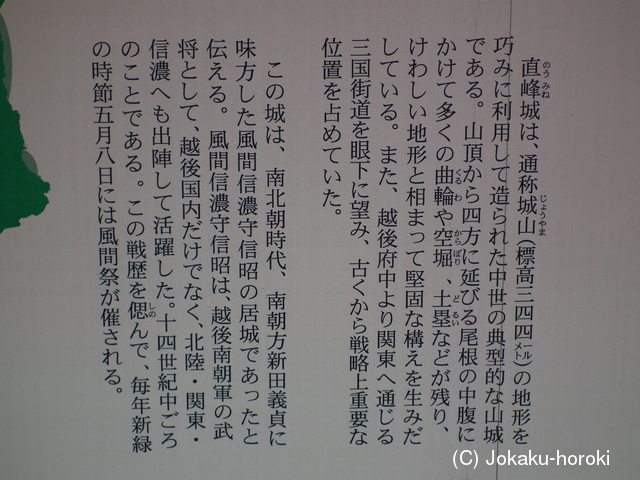 直峰城は、通称城山(標高三四四メートル)の地形を
巧みに利用して造られた中世の典型的な山城
である。山頂から四方に延びる尾根の中腹に
かけて多くの曲輪や空堀、土塁などが残り、
けわしい地形と相まって堅固な構えを生みだ
している。また、越後府中より関東へ通じる
三国街道を眼下に望み、古くから戦略上重要な
位置を占めていた。
この城は、南北朝時代、南朝方新田義貞に
味方した風間信濃守信昭の居城であったと
伝える。風間信濃守信昭は、越後南朝軍の武
将として、越後国内だけでなく、北陸・関東・
信濃へも出陣して活躍した。十四世紀中ごろ
のことである。この戦歴を偲んで、毎年新緑
の時節五月八日には風間祭が催される。
(C) Jokaku-horoki